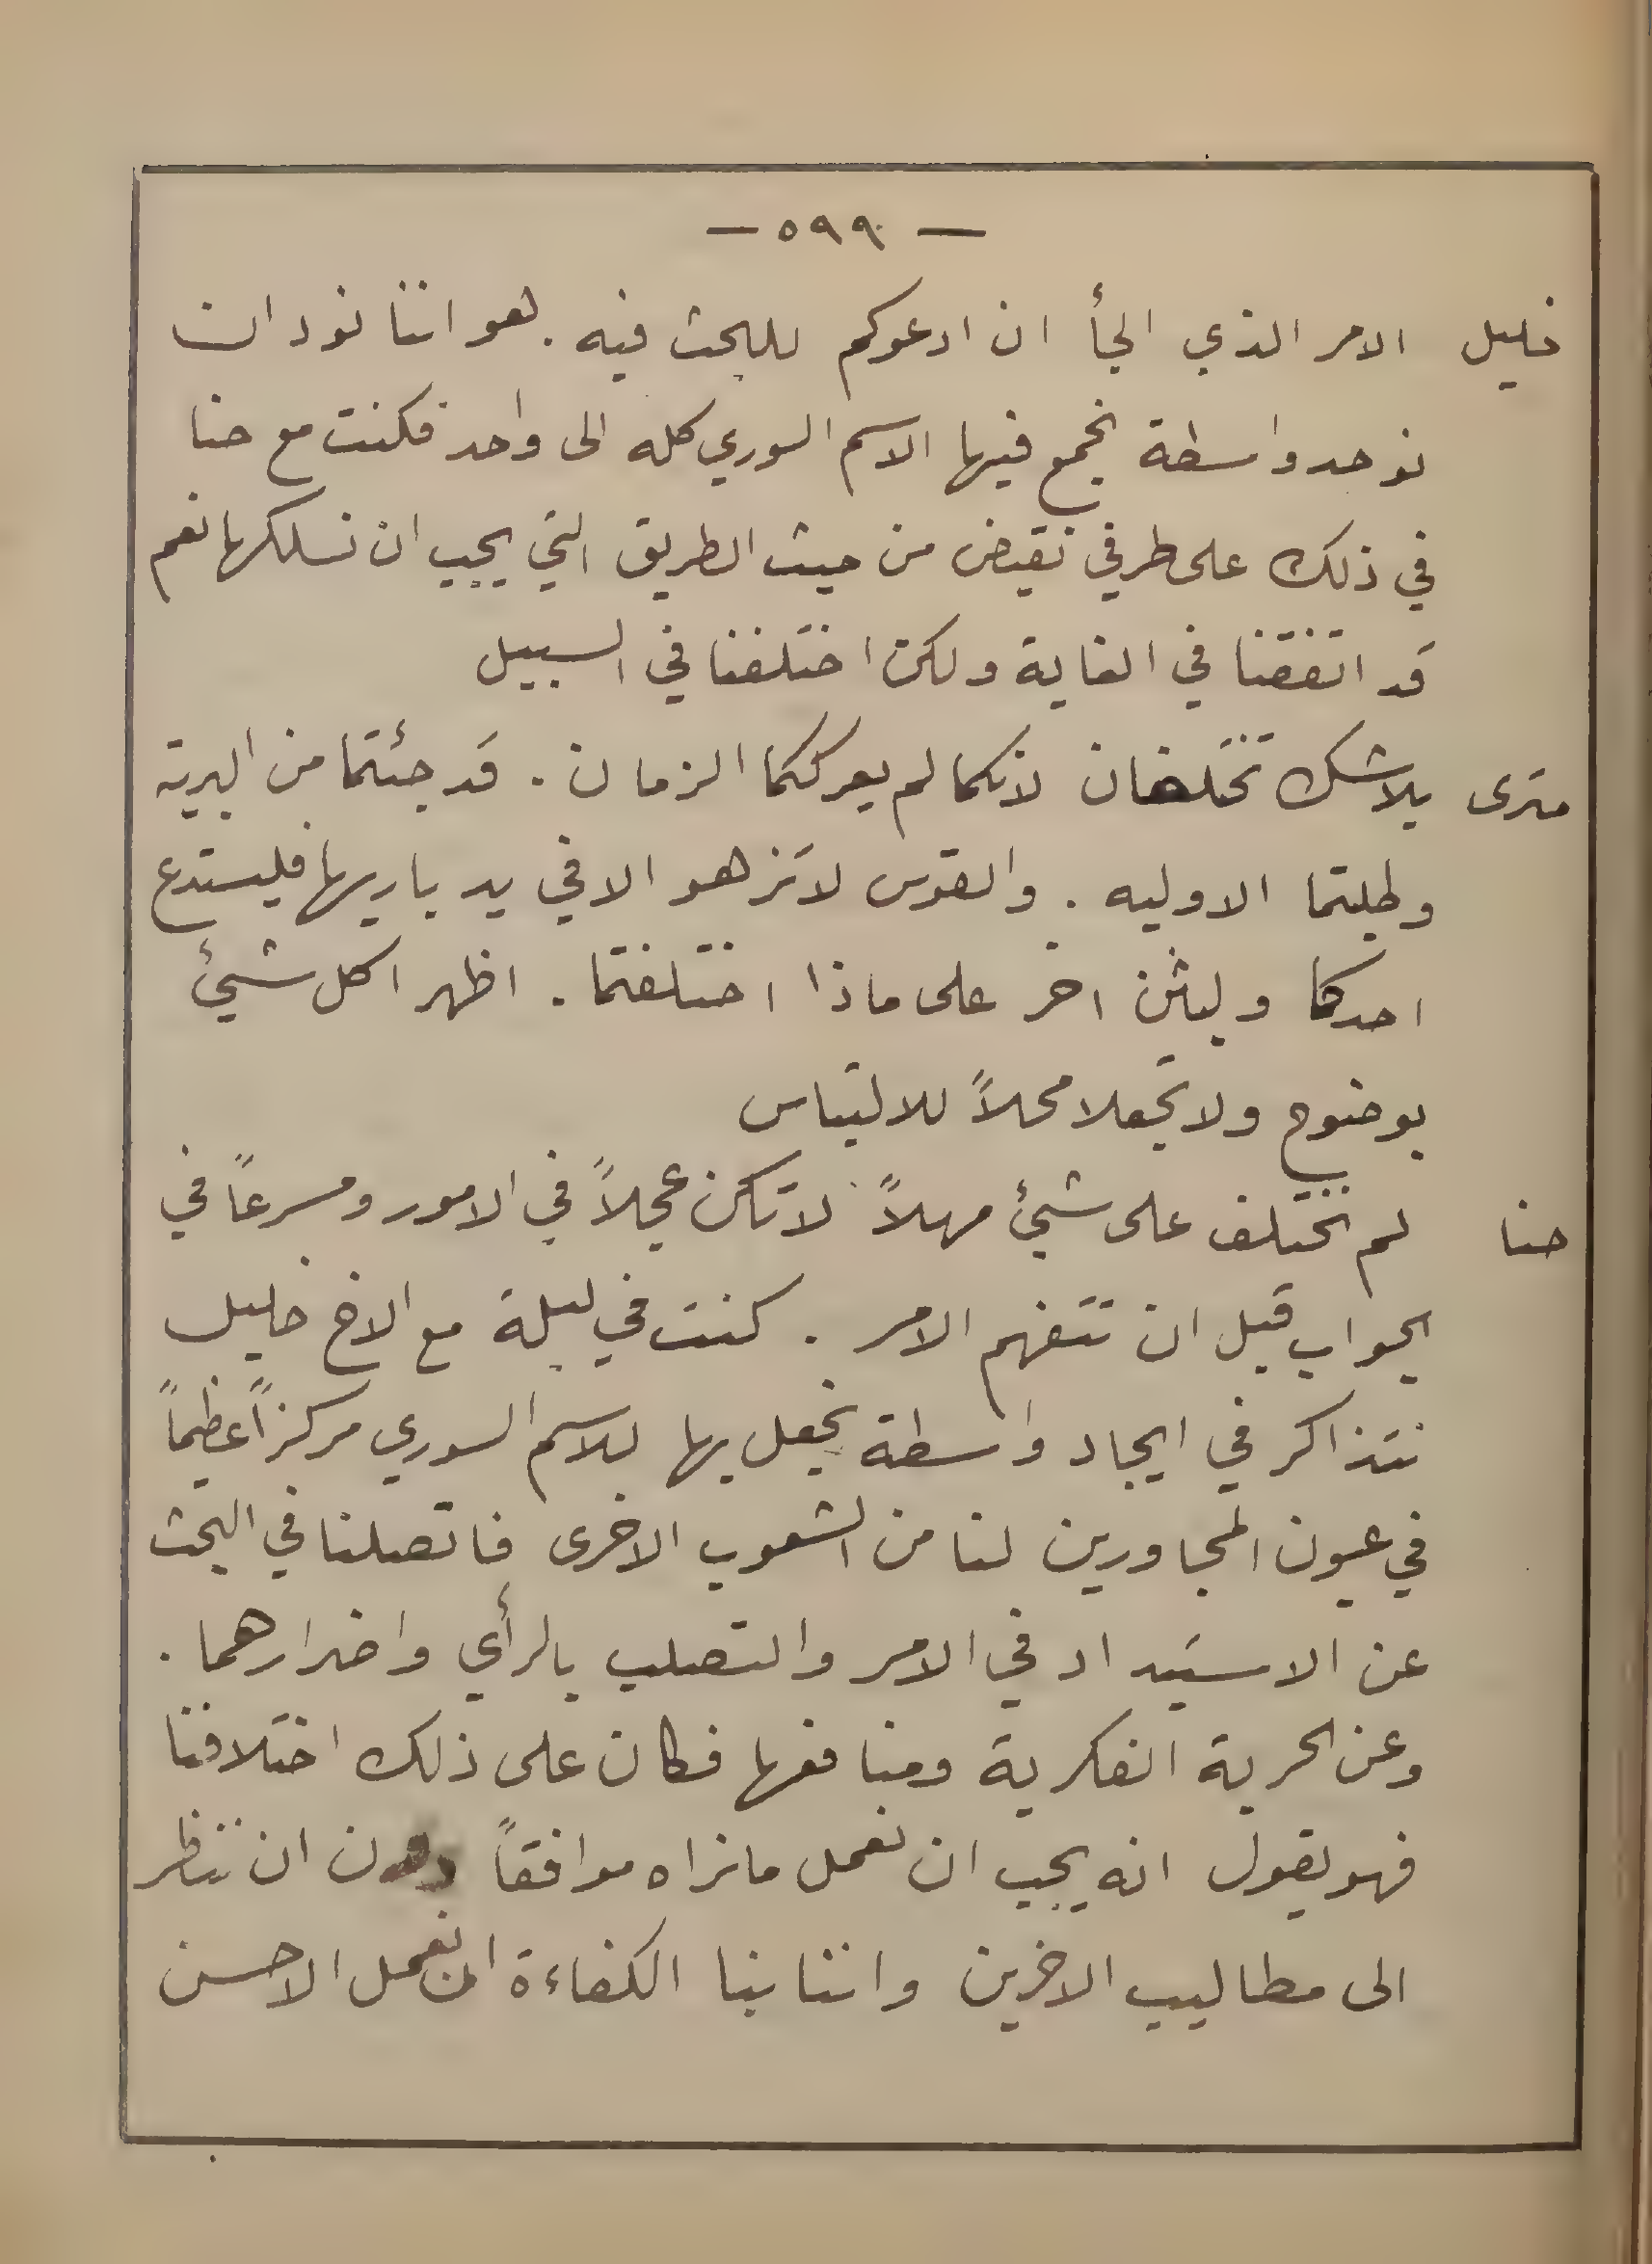 — ٥٩٩ —
خليل الامر الذي الجأ ان ادعوكم للبحث فيه . هو اننا نود ان
نوجد واسطة نجمع فيها الاسم السوري كله الى واحد فكنت مع حنا
في ذلك على طرفي نقيض من حيث الطريق التي يجب ان نسلكها نعم
قد اتفقنا في الغاية ولكن اختلفنا في السبيل
متري بلا شك تختلفان لانكما لم يعرككما الزمان . قد جئتما من البرية
وطلبتما الاوليه . والقوس لا تزهو الا في يد باريها فليستدع
احدكما وليثن اخر على ماذا اختلفتما . اظهرا كل شيئ
بوضوح ولا تجعلا محلاً للالتباس
حنا لم نختلف على شيئ مهلاً لا تكن عجلاً في الامور ومسرعاً في
الجواب قبل ان تتفهم الامر . كنت في ليلة مع الاخ خليل
نتذاكر في ايجاد واسطة نجعل بها للاسم السوري مركزاً عظيماً
في عيون المجاورين لنا من الشعوب الاخرى فاتصلنا في البحث
عن الاستبداد في الامر والتصلب بالرأي واضرارهما .
وعن الحرية الفكرية ومنافعها فكان على ذلك اختلافنا
فهو يقول انه يجب ان نعمل ما نراه موافقاً دون ان ننظر
الى مطاليب الاخرين واننا بنا الكفاءة ان نعمل الاحسن